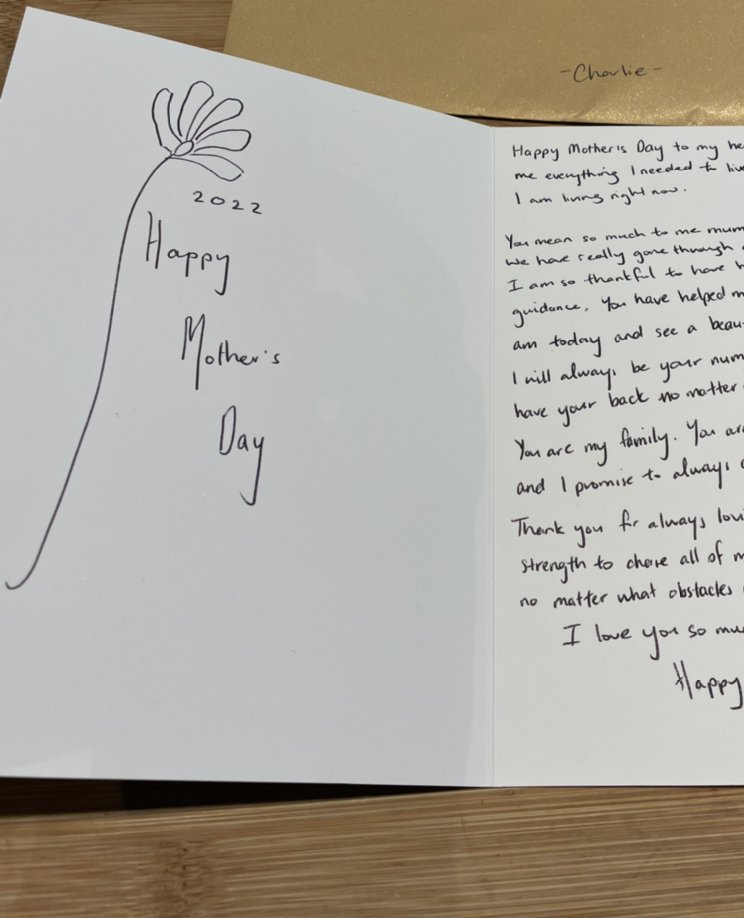 -Charlie-
2022
Happy
Mother's
Day
Happy Mother's Day to my he
me everything I needed to live
I am living right now.
You mean so much to me mum
We have really gone through
I am so thankful to have h
guidance. You have helped m
am today and see a beau
I will always be your num
have your back no matter
You are my family. You are
and I promise to always
Thank you for always lovi
strength to chase all of m
no matter what obstacles
I love you so mu
Happy